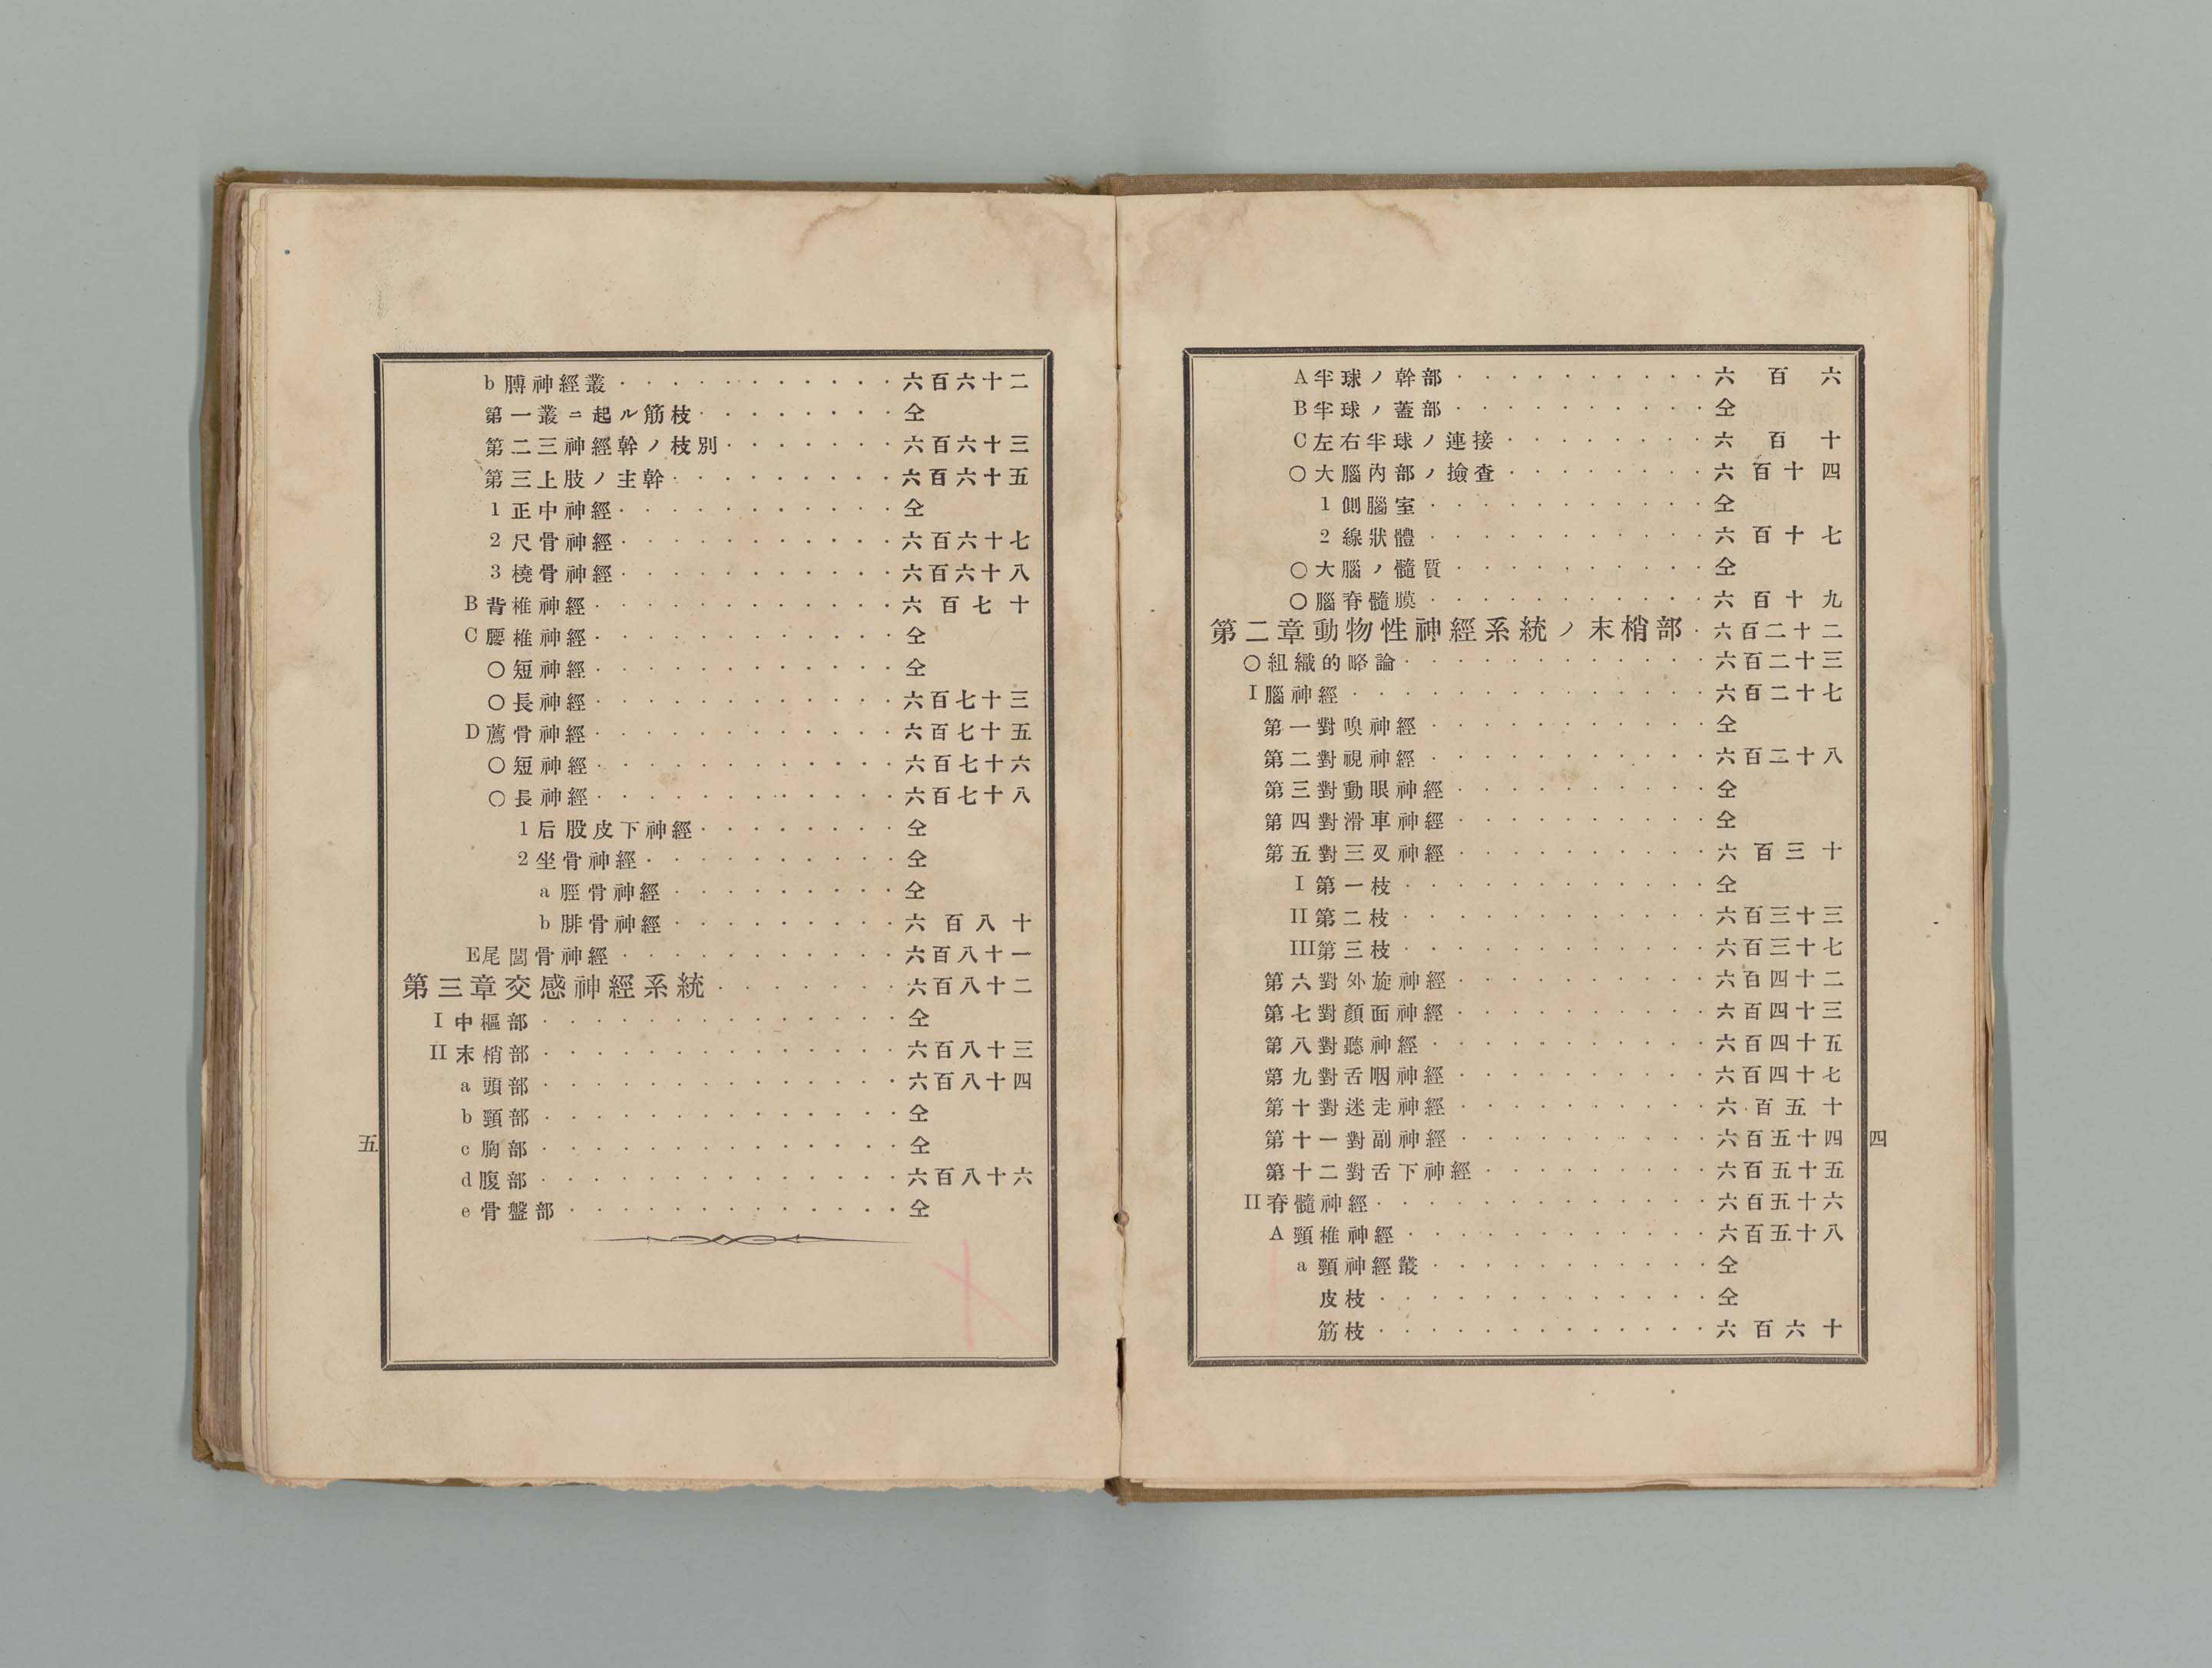 A半球ノ幹部・・・・・・・・・・六百六
B半球ノ蓋部・・・・・・・・・・仝
C左右半球ノ連接・・・・・・・・六百十
〇大腦內部ノ撿査・・・・・・・・六百十四
1側腦室・・・・・・・・・・・仝
2線狀體・・・・・・・・・・・六百十七
〇大腦ノ髓質・・・・・・・・・・仝
〇腦脊髓膜・・・・・・・・・・・六百十九
第二章動物性神經系統ノ末梢部・六百二十二
〇組織的略論・・・・・・・・・・・・六百二十三
I腦神經・・・・・・・・・・・・・・六百二十七
第一對嗅神經・・・・・・・・・・・仝
第二對視神經・・・・・・・・・・・六百二十八
第三對動眼神經・・・・・・・・・・仝
第四對滑車神經・・・・・・・・・・仝
第五對三叉神經・・・・・・・・・・六百三十
I第一枝・・・・・・・・・・・・仝
II第二枝・・・・・・・・・・・・六百三十三
III第三枝・・・・・・・・・・・・六百三十七
第六對外旋神經・・・・・・・・・・六百四十二
第七對顏面神經・・・・・・・・・・六百四十三
第八對聽神經・・・・・・・・・・・六百四十五
第九對舌咽神經・・・・・・・・・・六百四十七
第十對迷走神經・・・・・・・・・・六百五十
第十一對副神經・・・・・・・・・・六百五十四
第十二對舌下神經・・・・・・・・・六百五十五
II脊髓神經・・・・・・・・・・・・・六百五十六
A頸椎神經・・・・・・・・・・・・六百五十八
a頸神經叢・・・・・・・・・・・仝
皮枝・・・・・・・・・・・・・仝
筋枝・・・・・・・・・・・・・六百六十
四
b膊神經叢・・・・・・・・・・・六百六十二
第一叢ニ起ル筋枝・・・・・・・・仝
第二三神經幹ノ枝別・・・・・・・六百六十三
第三上肢ノ主幹・・・・・・・・・六百六十五
1正中神經・・・・・・・・・・・仝
2尺骨神經・・・・・・・・・・・六百六十七
3橈骨神經・・・・・・・・・・・六百六十八
B背椎神經・・・・・・・・・・・・六百七十
C腰椎神經・・・・・・・・・・・・仝
〇短神經・・・・・・・・・・・・仝
〇長神經・・・・・・・・・・・・六百七十三
D薦骨神經・・・・・・・・・・・・六百七十五
〇短神經・・・・・・・・・・・・六百七十六
〇長神經・・・・・・・・・・・・六百七十八
1后股皮下神經・・・・・・・・仝
2坐骨神經・・・・・・・・・・仝
a脛骨神經・・・・・・・・・仝
b腓骨神經・・・・・・・・・六百八十
E尾閭骨神經・・・・・・・・・・・六百八十一
第三章交感神經系統・・・・・・・六百八十二
I中樞部・・・・・・・・・・・・・・仝
II末梢部・・・・・・・・・・・・・・六百八十三
a頭部・・・・・・・・・・・・・・六百八十四
b頸部・・・・・・・・・・・・・・仝
c胸部・・・・・・・・・・・・・・仝
d腹部・・・・・・・・・・・・・・六百八十六
e骨盤部・・・・・・・・・・・・・仝
五